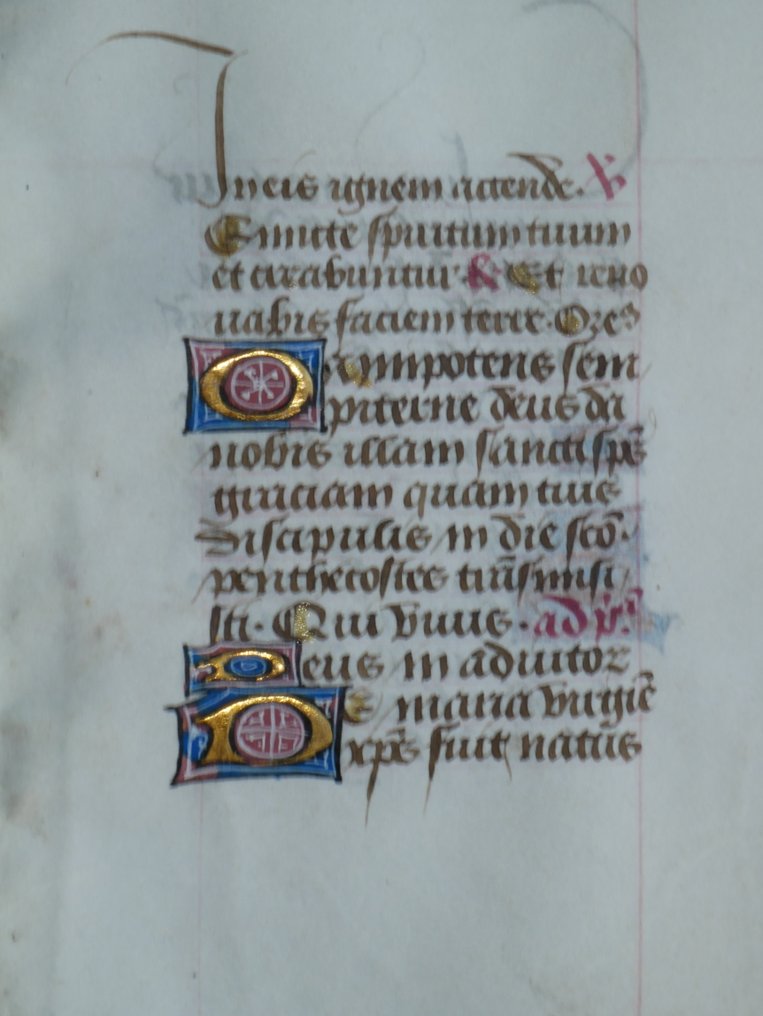 Jn eis ignem accende. V
Emitte spiritum tuum
et creabuntur. R Et reno
uabis faciem terre. Ore9
Omnipotens sem
piterne deus da
nobis illam sancti sps̄
graciam quam tuis
discipulis in die sc̄o.
penthecostes trāsmisi
sti. Qui viuis. ad
Deus in adiutor
De maria virgiē
xps̄ fuit natus